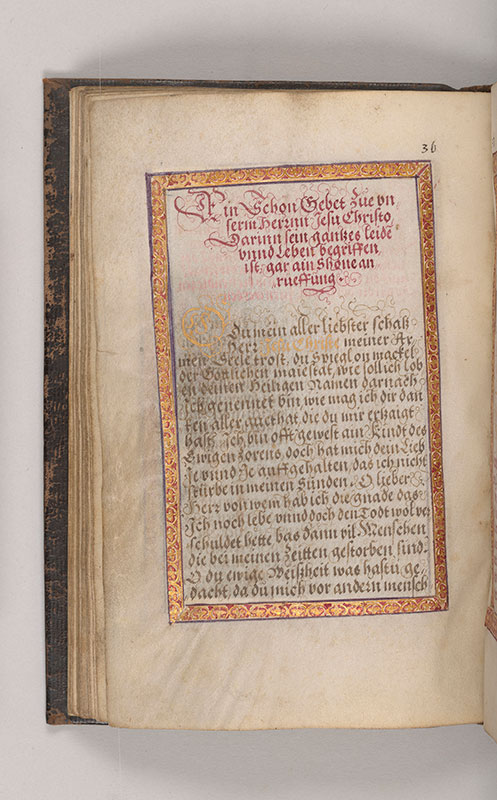 36
Ein Schon Gebet Zue vn
serm Herrnn Jesu Christo,
Darinn sein gantzes leidē
vnnd Leben begriffen,
ist, gar ain Shöne an
rueffung.
O Du mein aller liebster schatz
Herr Jesu Christe meiner Ar
men Seele trost, du Spiegl on mackel
der Götlichen maiestat, wie soll ich lob
en deinen Heiligen Namen darnach
Ich genennet bin, wie mag ich dir dan
ken aller guethat die du mir erzaigt
hast, Ich bin offt gewest ain Kindt des
Ewigen Zorens, doch hat mich dein Lieb
Je vnnd Je auffgehalten, das ich nicht
stürbe in meinen Sünden. O lieber
Herr von wem hab ich die gnade das
Ich noch lebe vnnd doch den Todt wol ver
schuldet hette bas dann vil Menschen
die bei meinen Zeitten gestorben sind.
O du ewige Weißheit was hastu ge
dacht, da du mich vor andern mensch